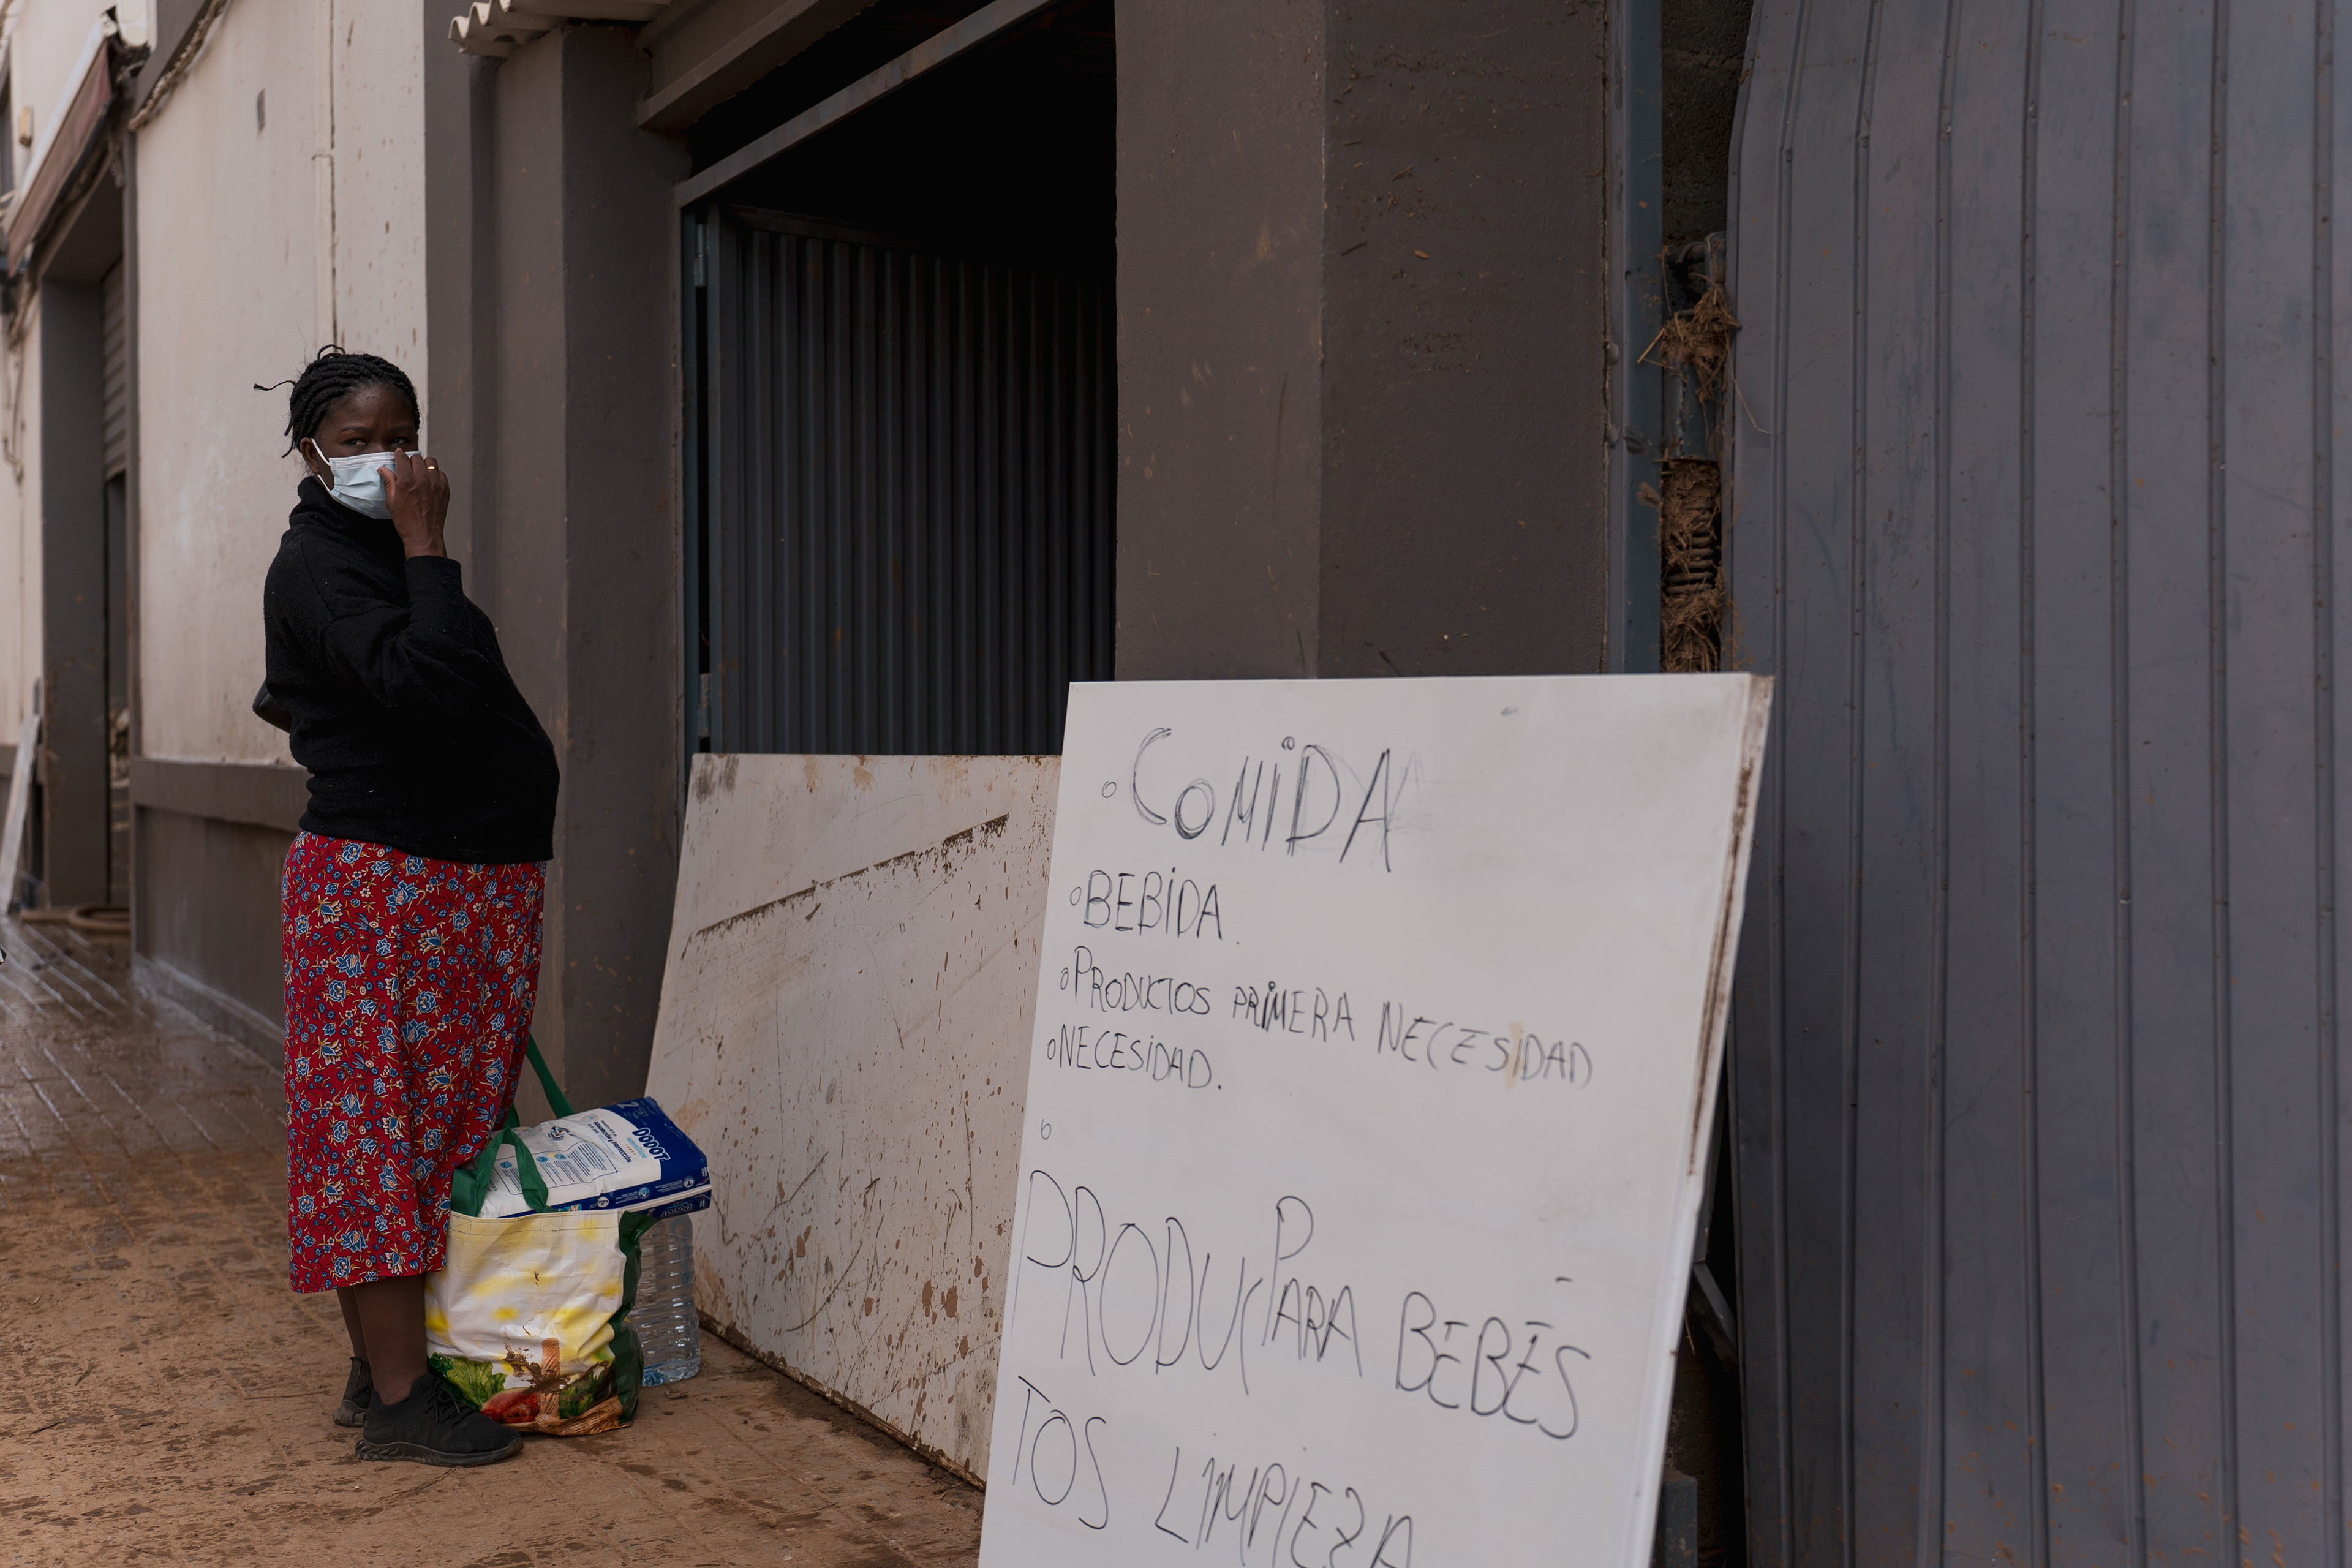 COMIDA
BEBIDA.
PRODUCTOS PRIMERA NECESIDAD
NECESIDAD.
PRODUC PARA BEBÉS
TOS LIMPIEZA
DODOT